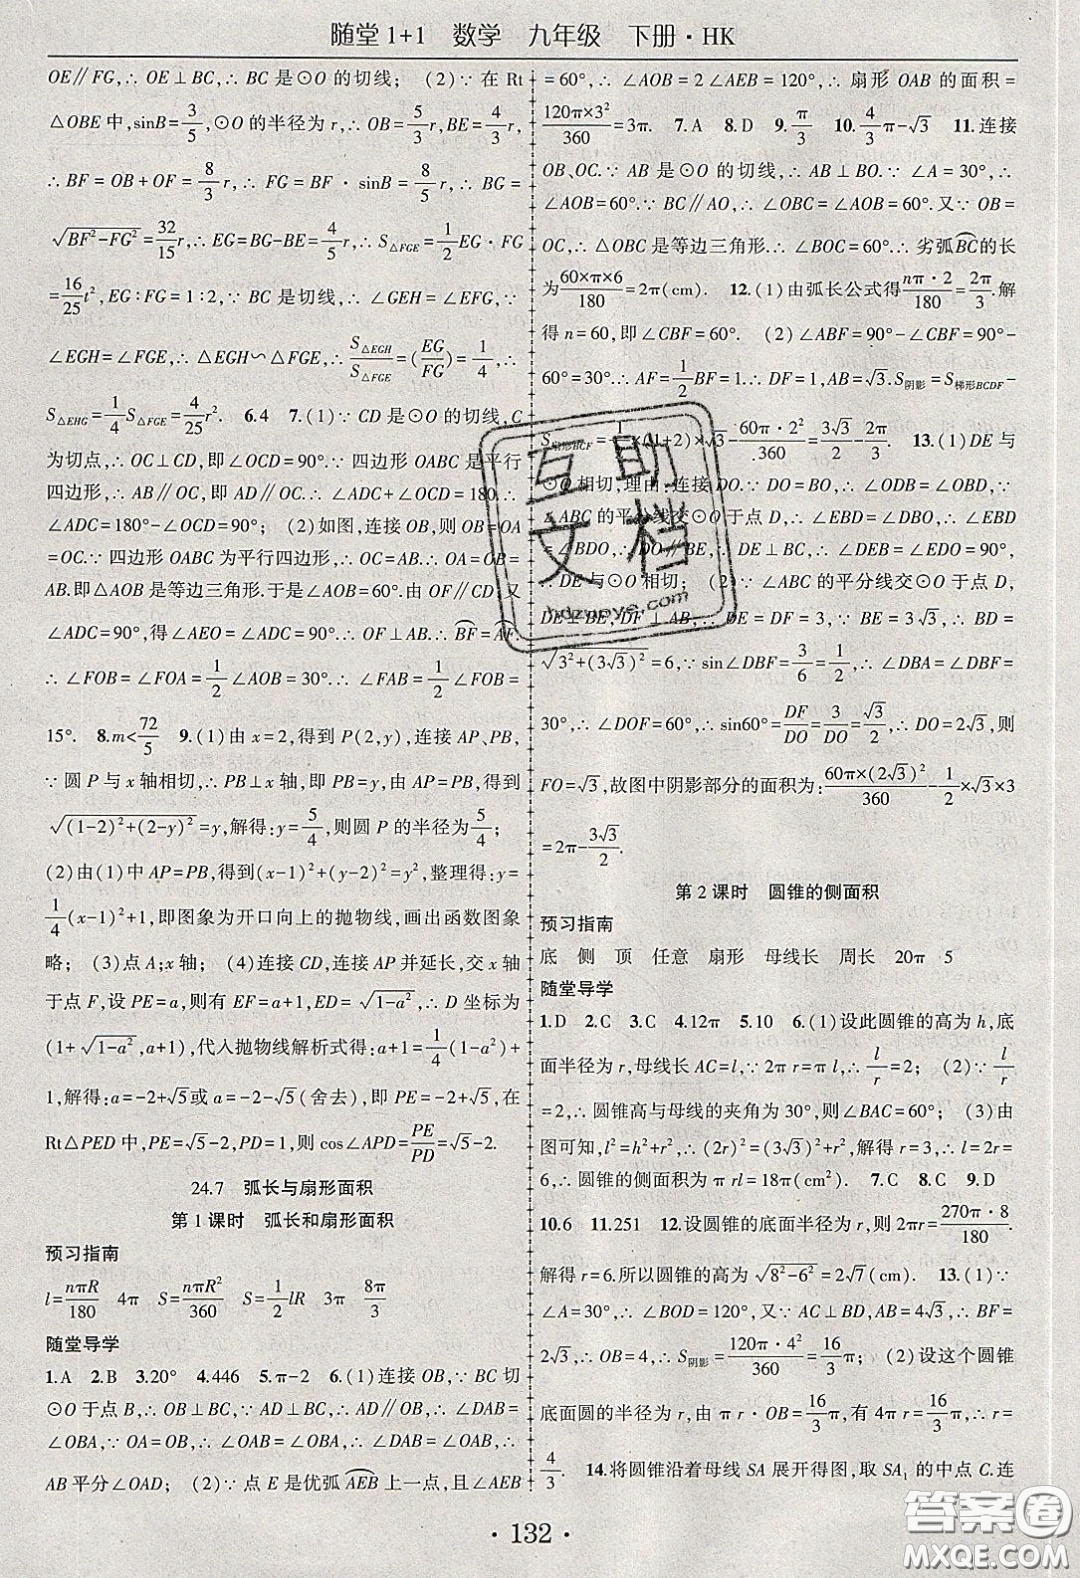 随堂1+1 数学 九年级 下册·HK
OE∥FG,∴OE⊥BC,∴BC是⊙O的切线；(2)∵在Rt
△OBE中,sinB=3/5,⊙O的半径为r,∴OB=5/3r,BE=4/3r,
∴BF=OB+OF=8/3r,∴FG=BF·sinB=8/5r,∴BG=
√(BF²-FG²)=32/15r,∴EG=BG-BE=4/5r,∴S△FGE=1/2EG·FG
=16/25t²,EG∶FG=1∶2,∵BC是切线,∴∠GEH=∠EFG,∵
∠EGH=∠FGE,∴△EGH∽△FGE,∴S△EGH/S△FGE=(EG/FG)=1/4,∴
S△EHG=1/4S△FGE=4/25r². 6.4 7.(1)∵CD是⊙O的切线,C
为切点,∴OC⊥CD,即∠OCD=90°∵四边形OABC是平行
四边形,∴AB∥OC,即AD∥OC,∴∠ADC+∠OCD=180∴
∠ADC=180°-∠OCD=90°；(2)如图,连接OB,则OB=OA
=OC.∵四边形OABC为平行四边形,∴OC=AB.∴OA=OB=
AB.即△AOB是等边三角形.于是∠AOB=60°.由OF∥CD,又
∠ADC=90°,得∠AEO=∠ADC=90°∴OF⊥AB.∴BF=AF.
∴∠FOB=∠FOA=1/2∠AOB=30°.∴∠FAB=1/2∠FOB=
15°. 8.m<72/5 9.(1)由x=2,得到P(2,y),连接AP、PB,
∵圆P与x轴相切,∴PB⊥x轴,即PB=y,由AP=PB,得到
√((1-2)²+(2-y)²)=y,解得:y=5/4,则圆P的半径为5/4；
(2)由(1)中AP=PB,得到(x-1)²+(y-2)²=y²,整理得:y=
1/4(x-1)²+1,即图象为开口向上的抛物线,画出函数图象
略；(3)点A;x轴；(4)连接CD,连接AP并延长,交x轴
于点F,设PE=a,则有EF=a+1,ED=√(1-a²),∴D坐标为
(1+√(1-a²),a+1),代人抛物线解析式得:a+1=1/4(1-a²)+
1,解得:a=-2+√5或a=-2-√5(舍去),即PE=-2+√5,在
Rt△PED中,PE=√5-2,PD=1,则cos∠APD=PE/PD=√5-2.
24.7 弧长与扇形面积
第1课时 弧长和扇形面积
预习指南
l=nπR/180 4π S=nπR²/360 S=1/2lR 3π 8π/3
随堂导学
1.A 2.B 3.20° 4.446 5.π-2 6.(1)连接OB,∵BC切
⊙O于点B,∴OB⊥BC,∵AD⊥BC,∴AD∥OB,∴∠DAB=
∠OBA,∵OA=OB,∴∠OAB=∠OBA,∴∠DAB=∠OAB,∴
AB平分∠OAD；(2)∵点E是优弧AEB上一点,且∠AEB
=60°,∴∠AOB=2∠AEB=120°,∴扇形OAB的面积=
120π×3²/360=3π. 7.A 8.D 9.π/3 10.4/3π-√3 11.连接
OB、OC.∵AB是⊙O的切线,∴AB⊥BO.∵∠A=30°,∴
∠AOB=60°.∵BC∥AO,∴∠OBC=∠AOB=60°.又∵OB=
OC,∴△OBC是等边三角形.∴∠BOC=60°.∴劣弧BC的长
为60×π×6/180=2π(cm). 12.(1)由弧长公式得nπ·2/180=2π/3.解
得n=60,即∠CBF=60°. (2)∠ABF=90°-∠CBF=90°-
60°=30°.∴AF=1/2BF=1,AB=√3.S阴影=S梯形BCDF-
S扇形BCF=1/2×(1+2)×√3-60π·2²/360=3√3/2-2π/3. 13.(1)DE与
⊙O相切,理由:连接DO.∵DO=BO,∴∠ODB=∠OBD,∵
∠ABC的平分线交⊙O于点D,∴∠EBD=∠DBO,∴∠EBD
=∠BDO,∴DO∥BE,∵DE⊥BC,∴∠DEB=∠EDO=90°,
∴DE与⊙O相切；(2)∵∠ABC的平分线交⊙O于点D,
DE⊥BE,DF⊥AB,∴DE=DF=3,∵BE=3√3,∴BD=
√(3²+(3√3)²)=6,∵sin∠DBF=3/6=1/2,∴∠DBA=∠DBF=
30°,∴∠DOF=60°,∴sin60°=DF/DO=3/DO=√3/2,∴DO=2√3,则
FO=√3,故图中阴影部分的面积为:60π×(2√3)²/360-1/2×√3×3
=2π-3√3/2.
第2课时 圆锥的侧面积
预习指南
底 侧 顶 任意 扇形 母线长 周长 20π 5
随堂导学
1.D 2.C 3.C 4.12π 5.10 6.(1)设此圆锥的高为h,底
面半径为r,母线长AC=l,∵2πr=πl,∴l/r=2；(2)∵l/r
=2,∴圆锥高与母线的夹角为30°,则∠BAC=60°；(3)由
图可知,l²=h²+r²,∴(2r)²=(3√3)²+r²,解得r=3,∴l=2r=
6,∴圆锥的侧面积为πrl=18π(cm²). 7.C 8.C 9.D
10.6 11.251 12.设圆锥的底面半径为r,则2πr=270π·8/180.
解得r=6.所以圆锥的高为√(8²-6²)=2√7(cm). 13.(1)∵
∠A=30°,∴∠BOD=120°,又∵AC⊥BD,AB=4√3,∴BF=
2√3,∴OB=4,∴S阴影=120π·4²/360=16/3π；(2)设这个圆锥
底面圆的半径为r,由π r·OB=16/3π,有4πr=16/3π,∴r=
4/3. 14.将圆锥沿着母线SA展开得图,取SA₁的中点C.连
·132·
互助
文档
hdzuoye.com
答案圈
MXQE.COM